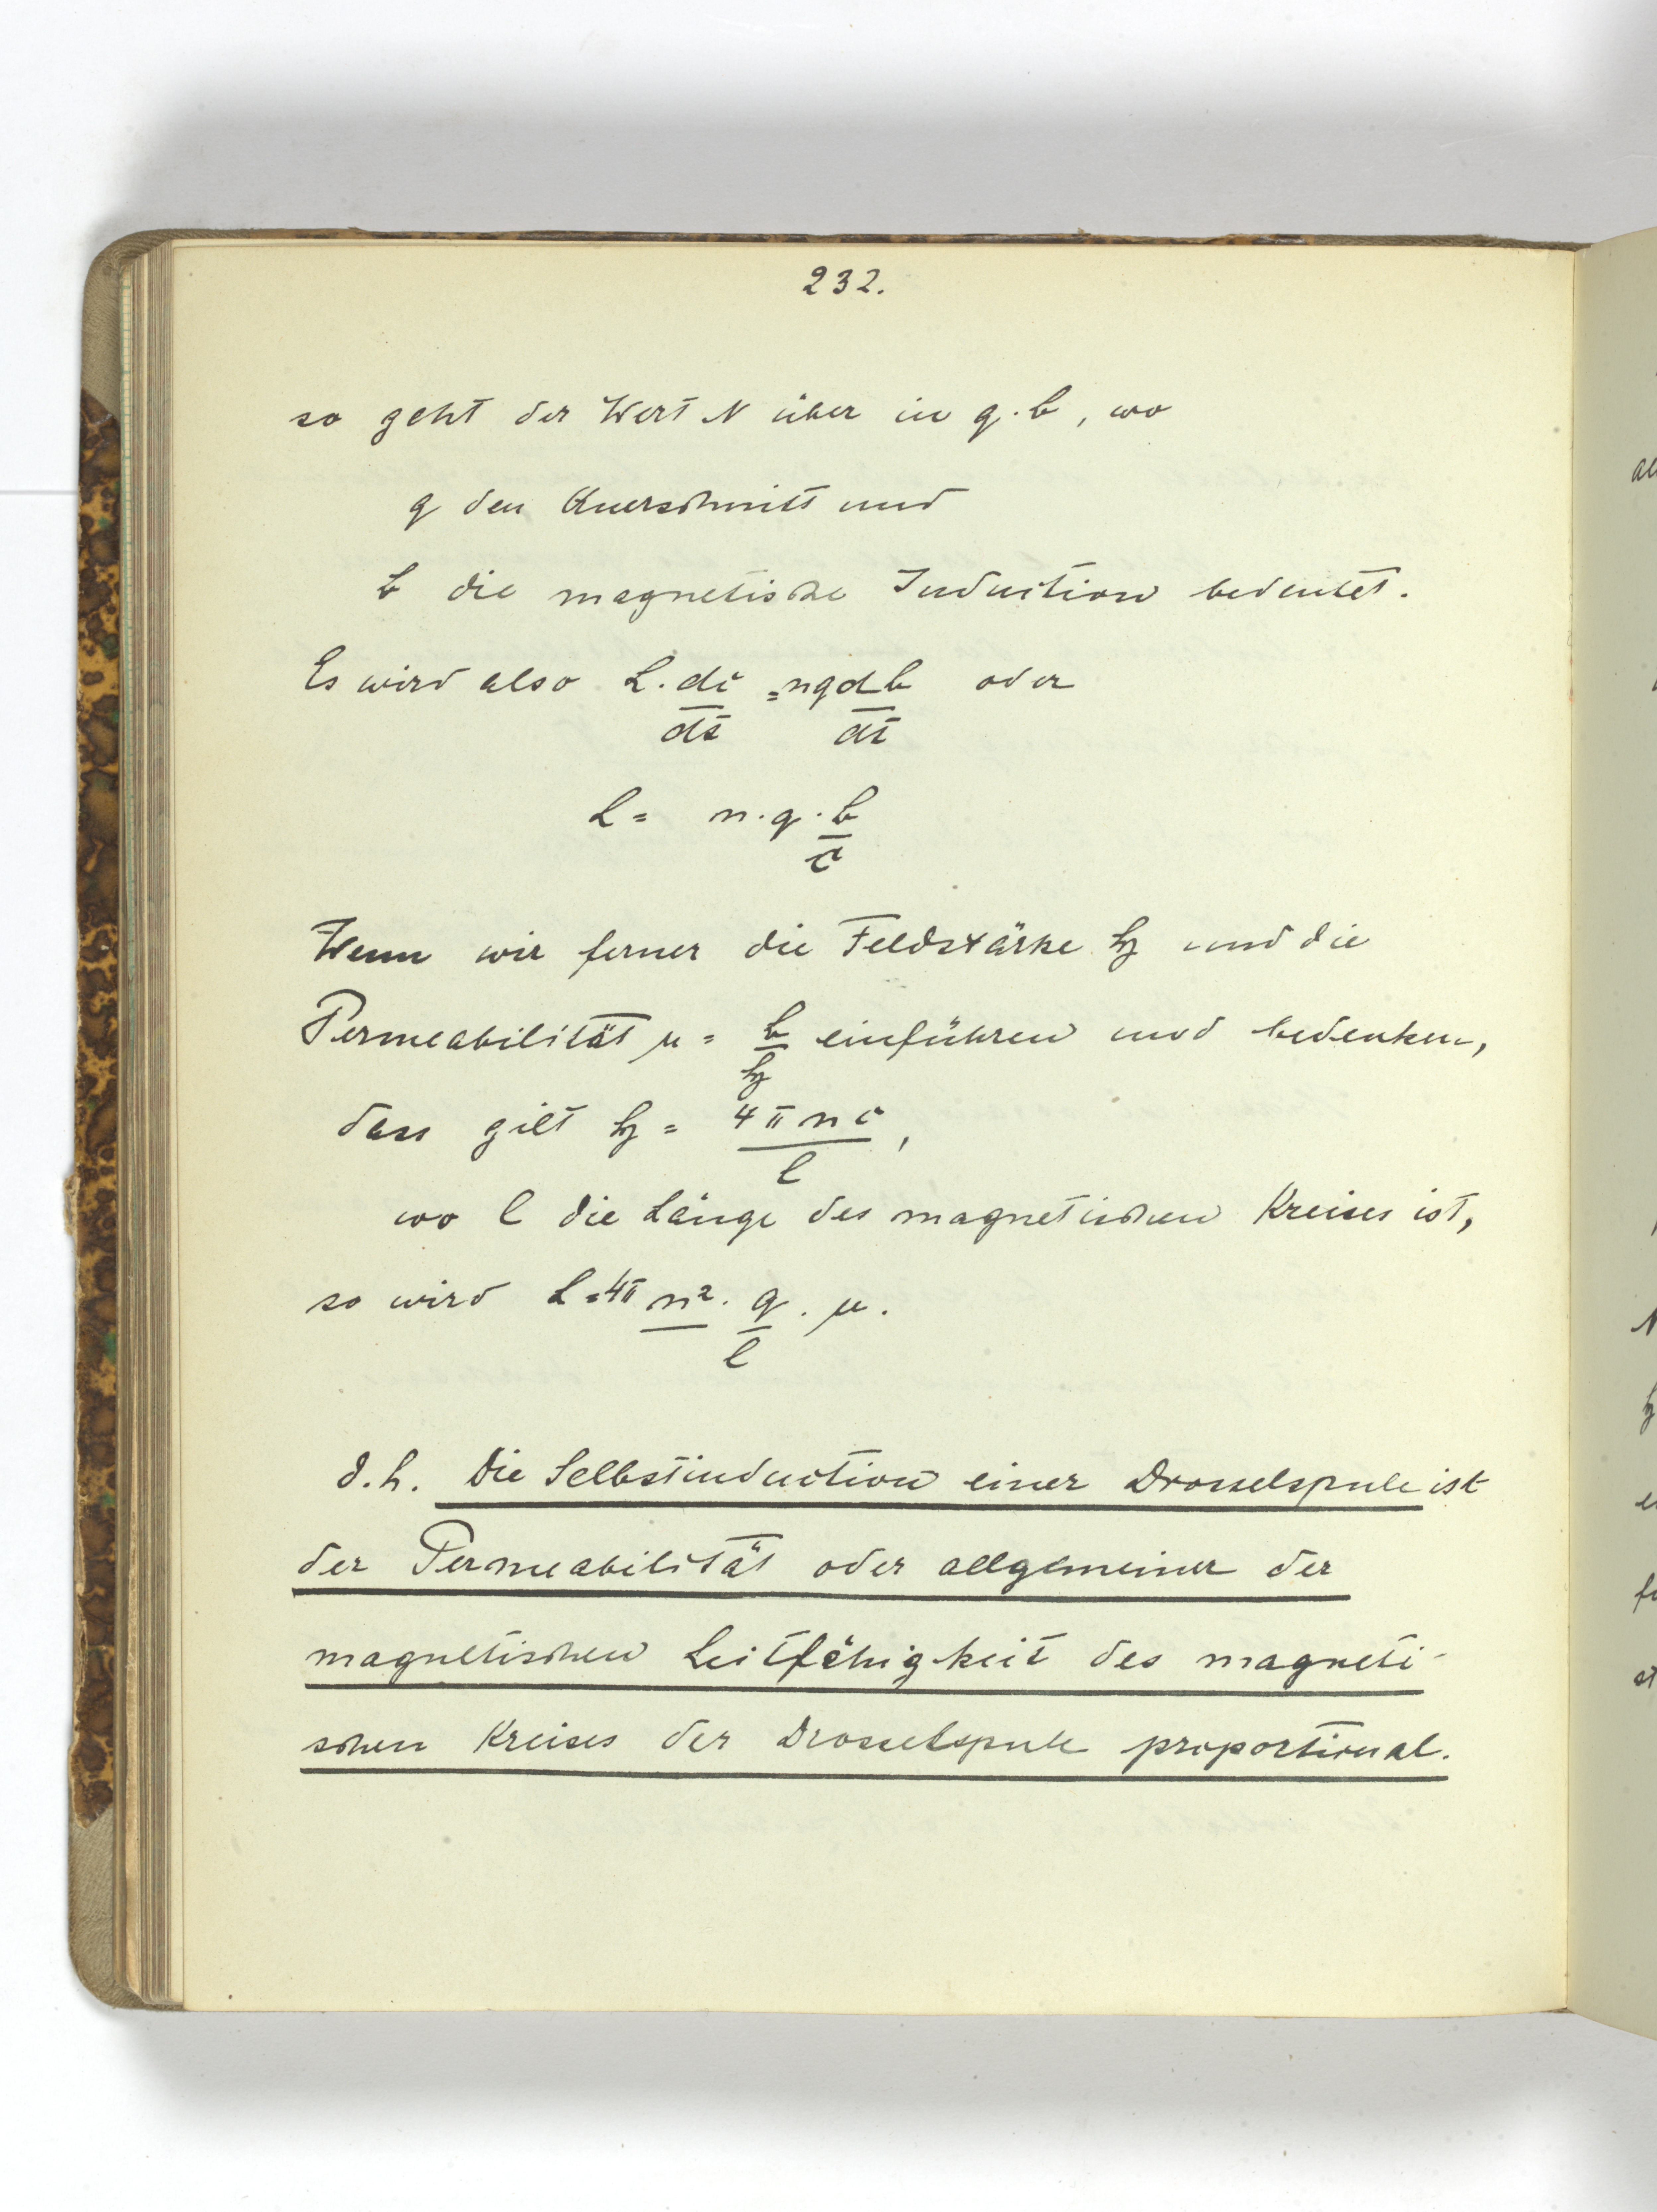 232.
so geht der Wert N über in q. b, wo
q den Querschnitt und
b die magnetische Induction bedeutet.
Es wird also L. di/dt = nq db/dt oder
L = n. q. b/i
Wenn wir ferner die Feldstärke h und die
Permeabilität µ = b/h einführen und bedenken,
dass gilt h = 4πni/l,
wo l die Länge des magnetischen Kreises ist,
so wird L = 4π n². q/l. µ.
d. h. Die Selbstinduction einer Drosselspule ist
der Permeabilität oder allgemeiner der
magnetischen Leitfähigkeit des magneti-
schen Kreises der Drosselspule proportional.